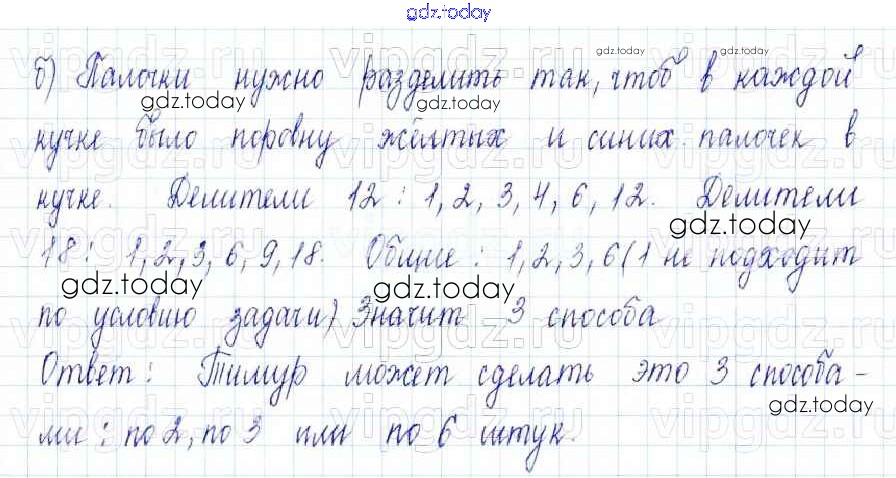 gdz.today
б) Палочки нужно разделить так, чтоб в каждой
кучке было поровну жёлтых и синих палочек в
кучке. Делители 12 : 1, 2, 3, 4, 6, 12. Делители
18: 1, 2, 3, 6, 9, 18. Общие : 1, 2, 3, 6 (1 не подходит
по условию задачи) Значит 3 способа
Ответ: Тимур может сделать это 3 способа-
ми : по 2, по 3 или по 6 штук.
gdz.today
gdz.today
gdz.today
gdz.today
gdz.today
gdz.today
gdz.today
gdz.today
vipgdz.ru